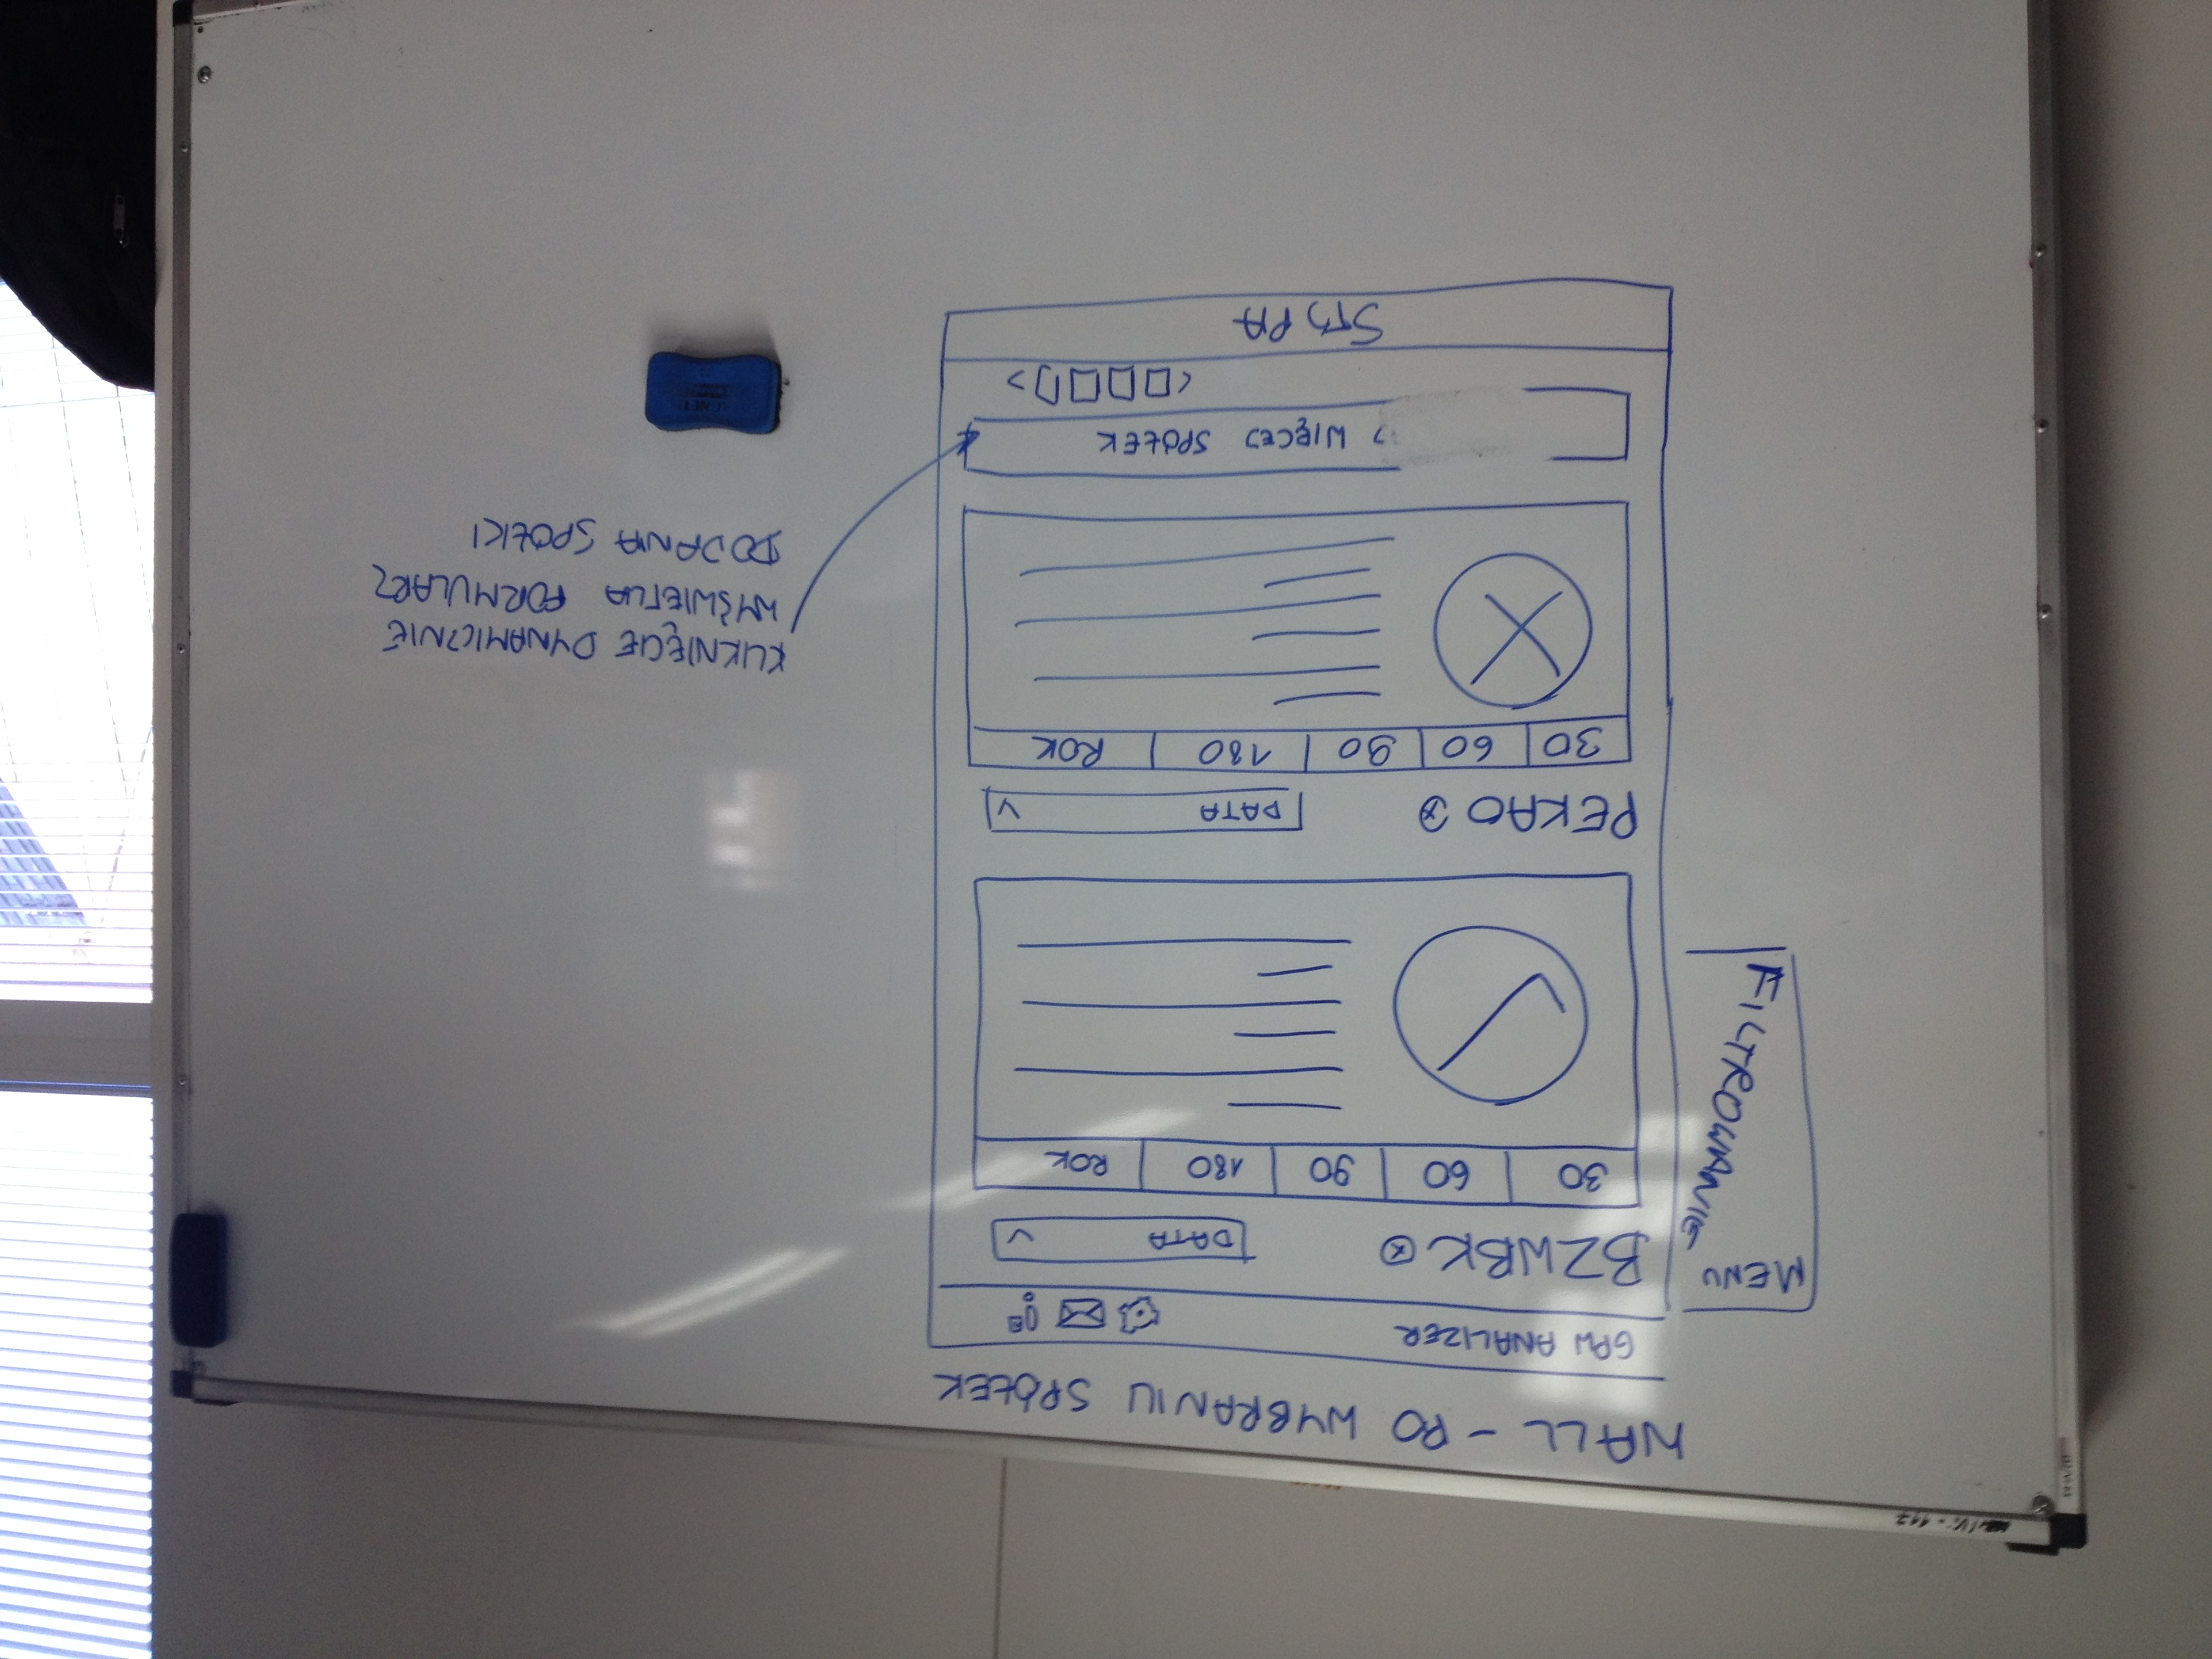 WALL - PO WYBRANIU SPÓŁEK
GPW ANALIZER
MENU
FILTROWANIE
BZWBK
DATA
30 60 90 180 ROK
PEKAO
DATA
30 60 90 180 ROK
WIĘCEJ SPÓŁEK
STOPA
KLIKNIĘCIE DYNAMICZNIE
WYŚWIETLA FORMULARZ
DODANIA SPÓŁKI